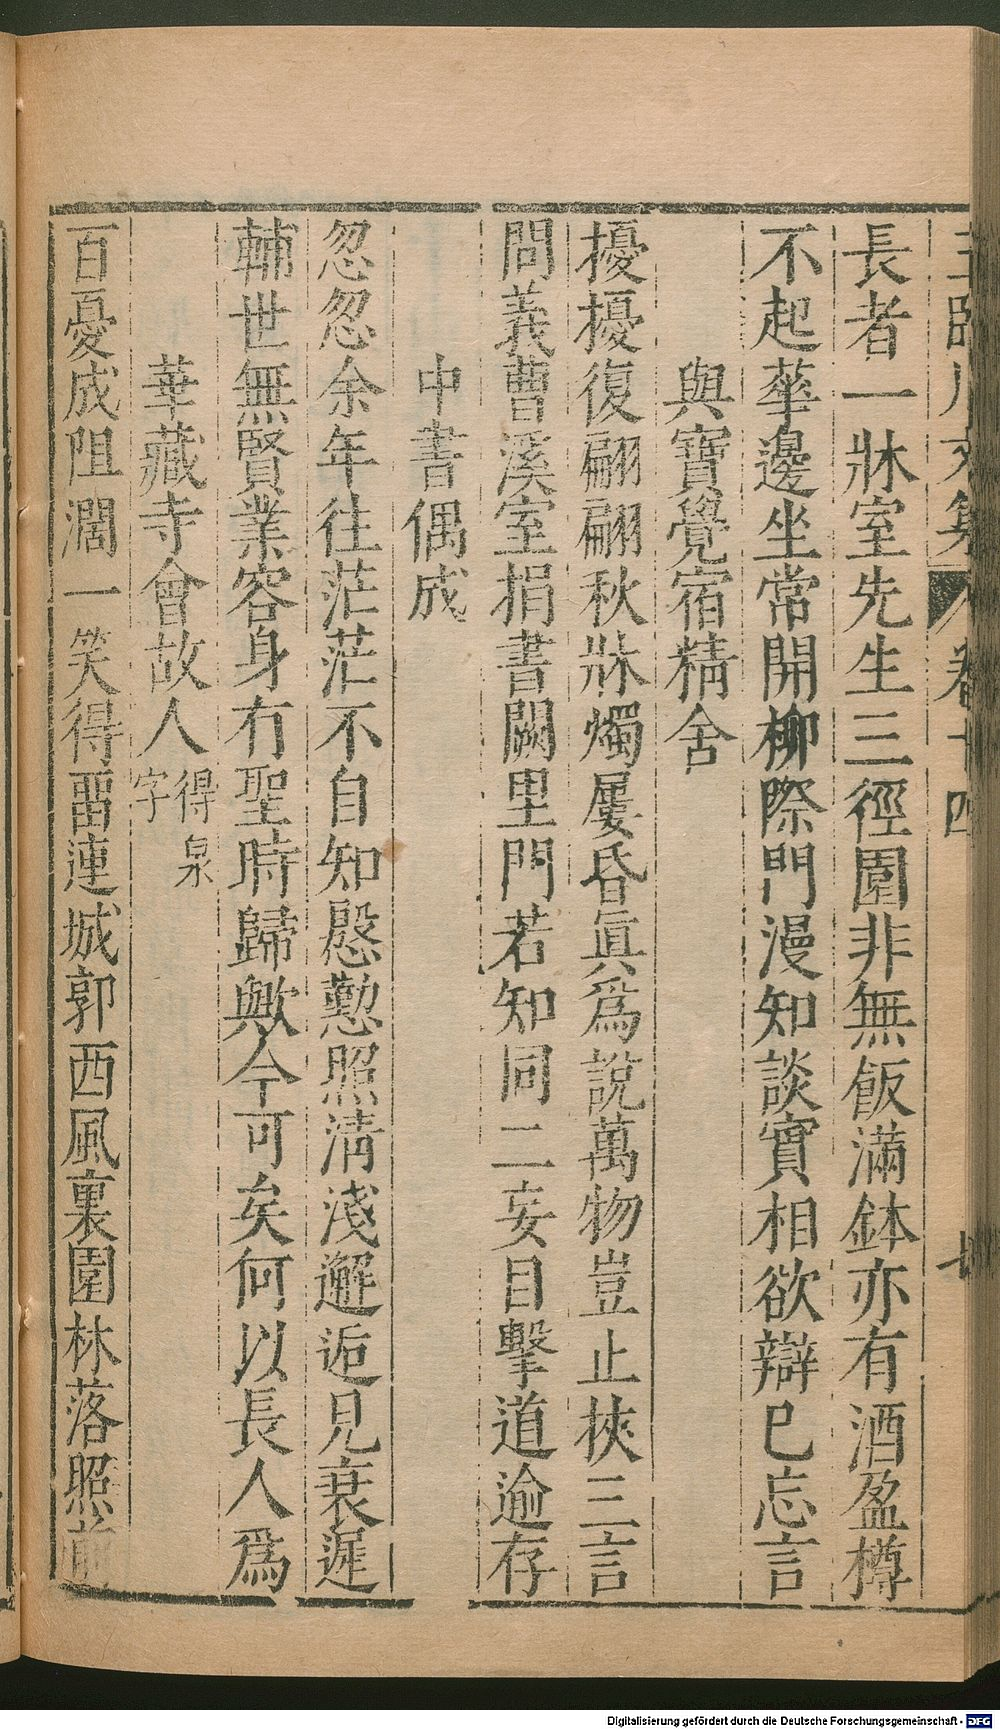 長者一牀室先生三徑園非無飯滿鉢亦有酒盈樽
不起華邊坐常開柳際門漫知談實相欲辯已忘言
與寶覺宿精舍
擾擾復翩翩秋牀燭屢昏眞爲說萬物豈止挾三言
問義曹溪室捐書闕里門若知同二妄目擊道逾存
中書偶成
忽忽余年往茫茫不自知慇懃照清淺邂逅見衰遲
輔世無賢業容身有聖時歸歟今可矣何以長人爲
華藏寺會故人得泉字
百憂成阻濶一笑得畱連城郭西風裏園林落照前
Digitalisierung gefördert durch die Deutsche Forschungsgemeinschaft - DFG